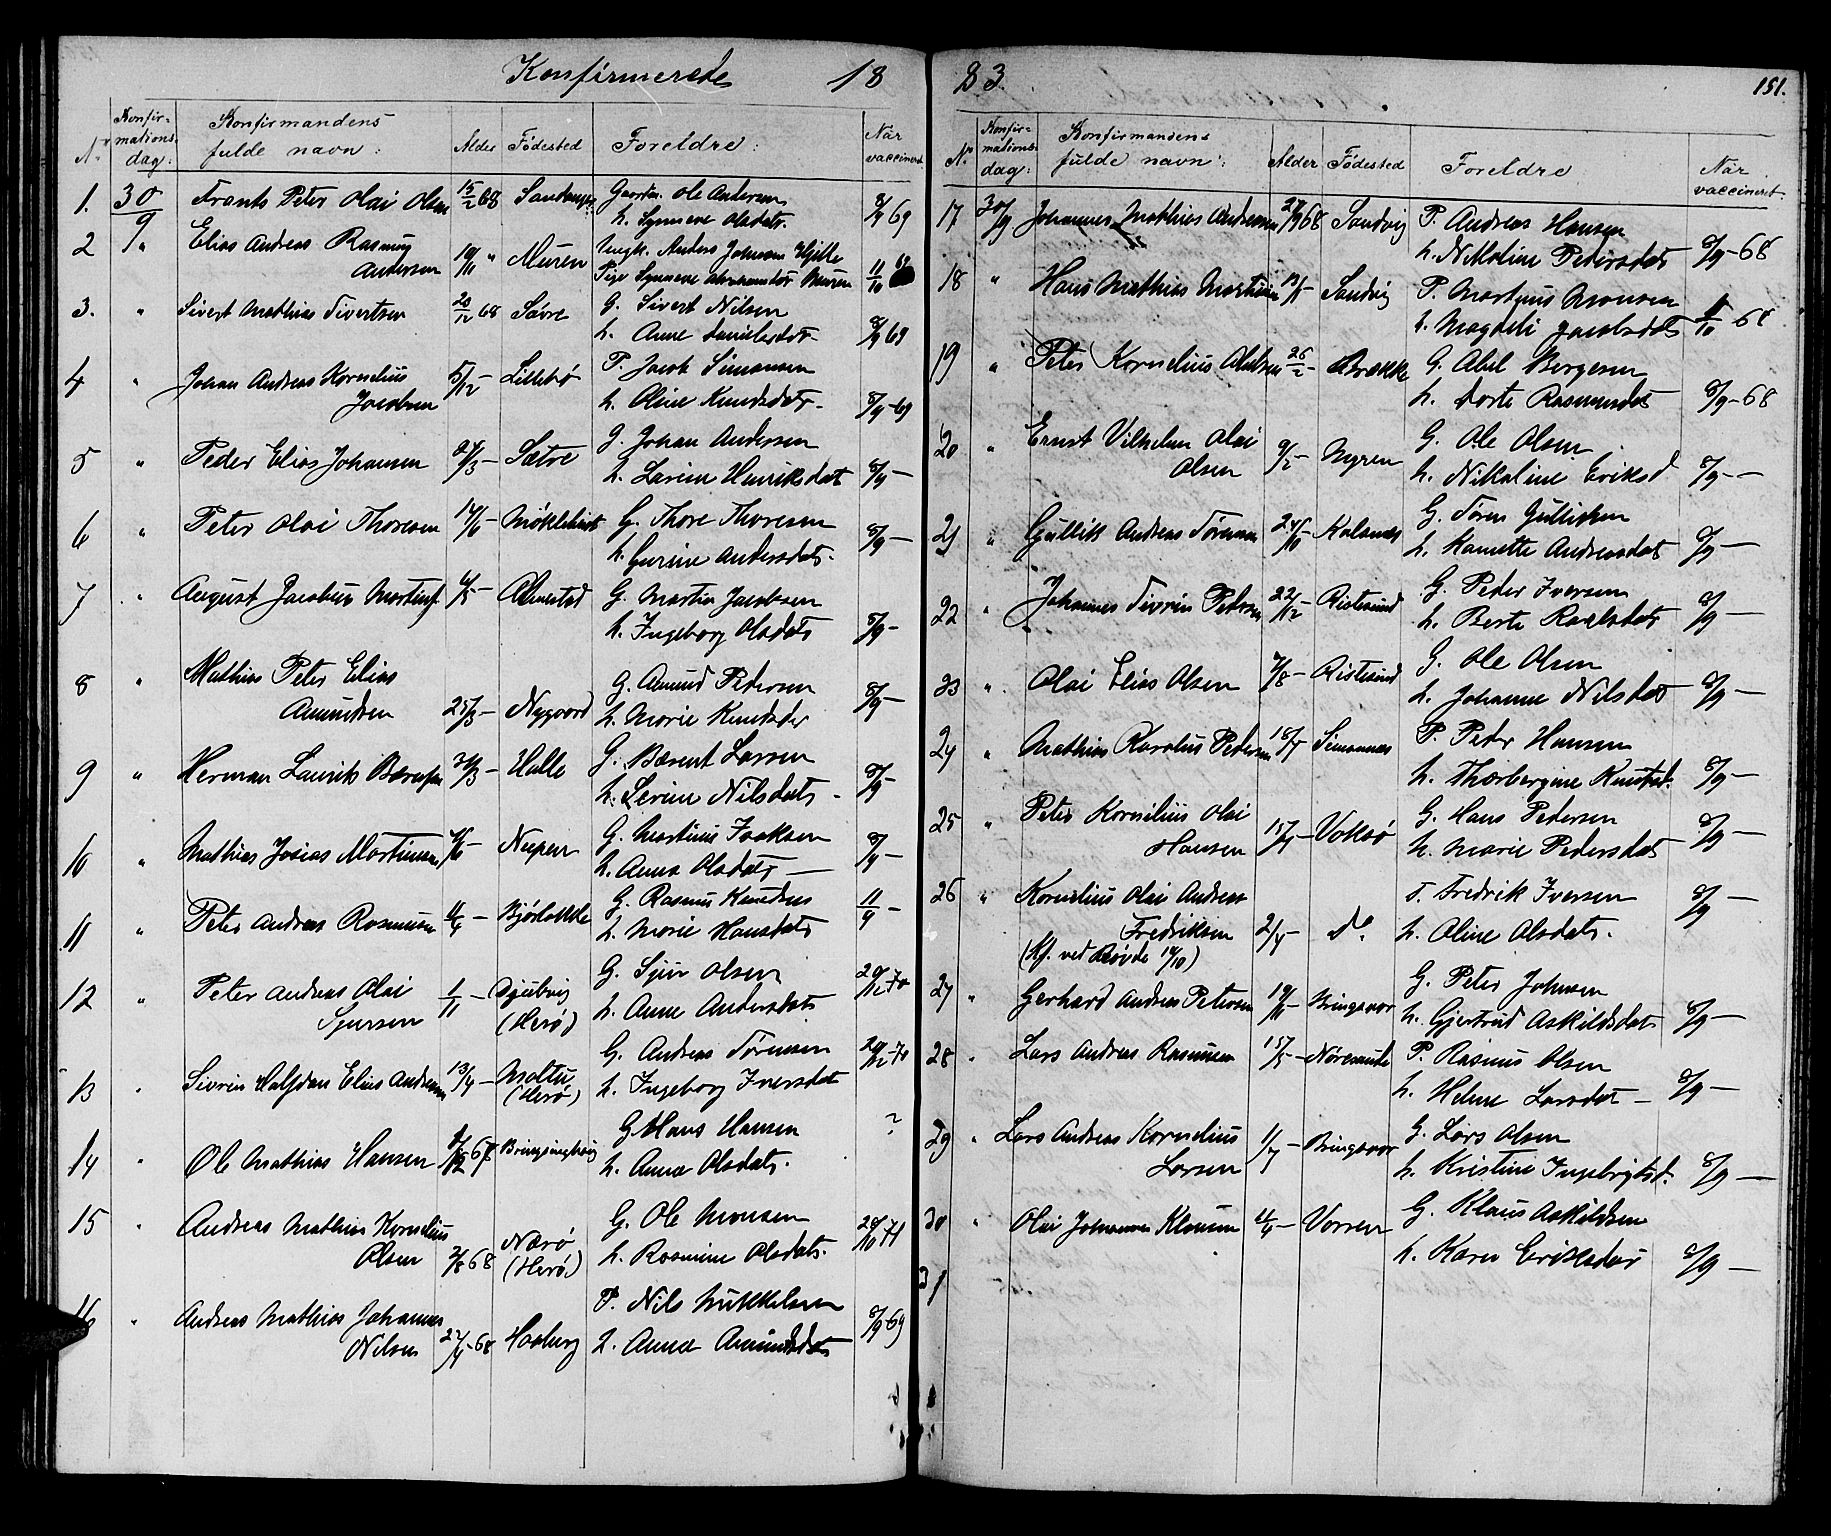 Konfirmerede 18
N.
Konfir-
mations-
dag:
Konfirmandens
fulde navn:
Alder
Fødested
Foreldre:
Når
vaccineret
1. 30/9 Frants Peter Olai Olsen 15/2 68 Gaardm. Ole Andersen 8/9 69
h. Synneve Olsdatr.
2 " Elias Andreas Rasmus
Andersen 19/11 " Muren Ungk. Anders Johnsen Hjelle
Pige Synneve Muren 11/10
3. " Sivert Mathias Sivertsen 20/12 68 Sævre G. Sivert Nilsen
h. Anne Danielsdatr. 8/9 69
4 " Johan Andreas Kornelius
Jacobsen 5/12 - Lillebø P. Jacob Simonsen
h. Oline Knudsdatr. 8/9 - 69
5 " Peder Elias Johansen 24/3 - Sætre G. Johan Andersen
h. Larine Henriksdat 8/9 -
6 " Peter Olai Thoresen 14/6 - Møklebust G. Thore Thoresen
h. Gurine Andersdatr. 8/9 -
7 " August Jacobus Martinss. G. Martin Jacobsen
h. Ingeborg Olsdatr 8/9 -
8 " Mathias Peter Elias
Amundsen 25/3 - Nygaard G. Amund Pedersen
h. Marie Knudsdr 8/9 -
9 " Herman Laurits Halle G. Bærent Larsen
h. Serine Nilsdatr - 8/9
10 " Mathias Josias Martinsen Nupen G. Martinus Isaksen
h. Anna Olsdatr - 8/9 -
11 " Peter Andreas Rasmussen Bjørlokke G. Rasmus Knudsen 11/9 -
h. Marie Hansdatr
12 " Peter Andreas Olai
Sjursen 1/11 - Djubvig
(Herø) G. Sjur Olsen
h. Anne Andersdatr
13 " Sivrin Halfdan Elias Andreassen 13/4 - Moltu
(Herø) G. Andreas Sørensen
h. Ingeborg Iversdat
14 " Ole Mathias Hansen G. Hans Hansen ?
h. Anna Olsdatr.
15 " Andreas Mathias Kornelius
Olsen 2/8 68 Nærø
(Herø) G. Ole Monsen
h. Rasmine Olsdatr.
16 " Andreas Mathias Johannes
Nilsen 22/4 - 68 Haaberg P. Nils Mikkelsen
h. Anna Amundsdatr 8/9 - 69
83. 151.
N.
Konfir-
mations-
dag:
Konfirmandens
fulde navn:
Alder
Fødested
Foreldre
Når
vaccineret.
17 30/9 Johannes Mathias Andreassen 27/9 68 Sandvig P. Andreas Hansen
h. Nikoline Pedersdatr 8/9 - 68
18 " Hans Mathias Martinsen Sandvig P. Martinus Monsen
h. Magdeli Jacobsdatr
19 " Peter Kornelius Abelsen 26/2 - Brække G. Abel Børgesen
h. Dorte Rasmusdat 8/9 - 68
20 " Ernst Vilhelm Olai
Olsen 9/2 - Myren G. Ole Olsen
h. Nikoline Eriksd 8/9 - -
21 " Gullik Andreas Sørensen 24/10 Kalsnæs G. Søren Gulliksen
h. Hanette Andreasdatr 8/9 -
22 " Johannes Sivrin Pedersen 22/12 - Ristesund G. Peder Iversen
h. Berte Roalsdatr 8/9 -
23 " Olai Elias Olsen 7/8 - Ristesund G. Ole Olsen
h. Johanne Nilsdat 8/9 -
24 " Mathias Karolus Pedersen 18/7 Simonnæs P. Peder Hansen
h. Thorbergine Knutsd. 8/9 -
25 " Peter Kornelius Olai
Hansen Voksø G. Hans Pedersen
h. Marie Pedersdatr 8/9 -
26 " Kornelius Olai Andreas
Fredriksen 2/4 - Do.
(Kf. ved Røvde 14/10) Fredrik Iversen
h. Oline Olsdatr. 8/9 -
27 " Gerhard Andreas Petersen Bringsvor G. Peter Johnsen
h. Gjertrud Askildsdatr 8/9 -
28 " Lars Andreas Rasmussen 15/5 - Nøresunde P. Rasmus Olsen
h. Helene Larsdat - 8/9 -
29 " Lars Andreas Kornelius
Larsen 1/7 - Bringsvor G. Lars Olsen
h. Kristine Ingebrigtsd. 8/9 -
30 " Olai Johannes Klausen Vorren G. Klaus Askildsen
h. Karen Eriksdatr 8/9 -
31